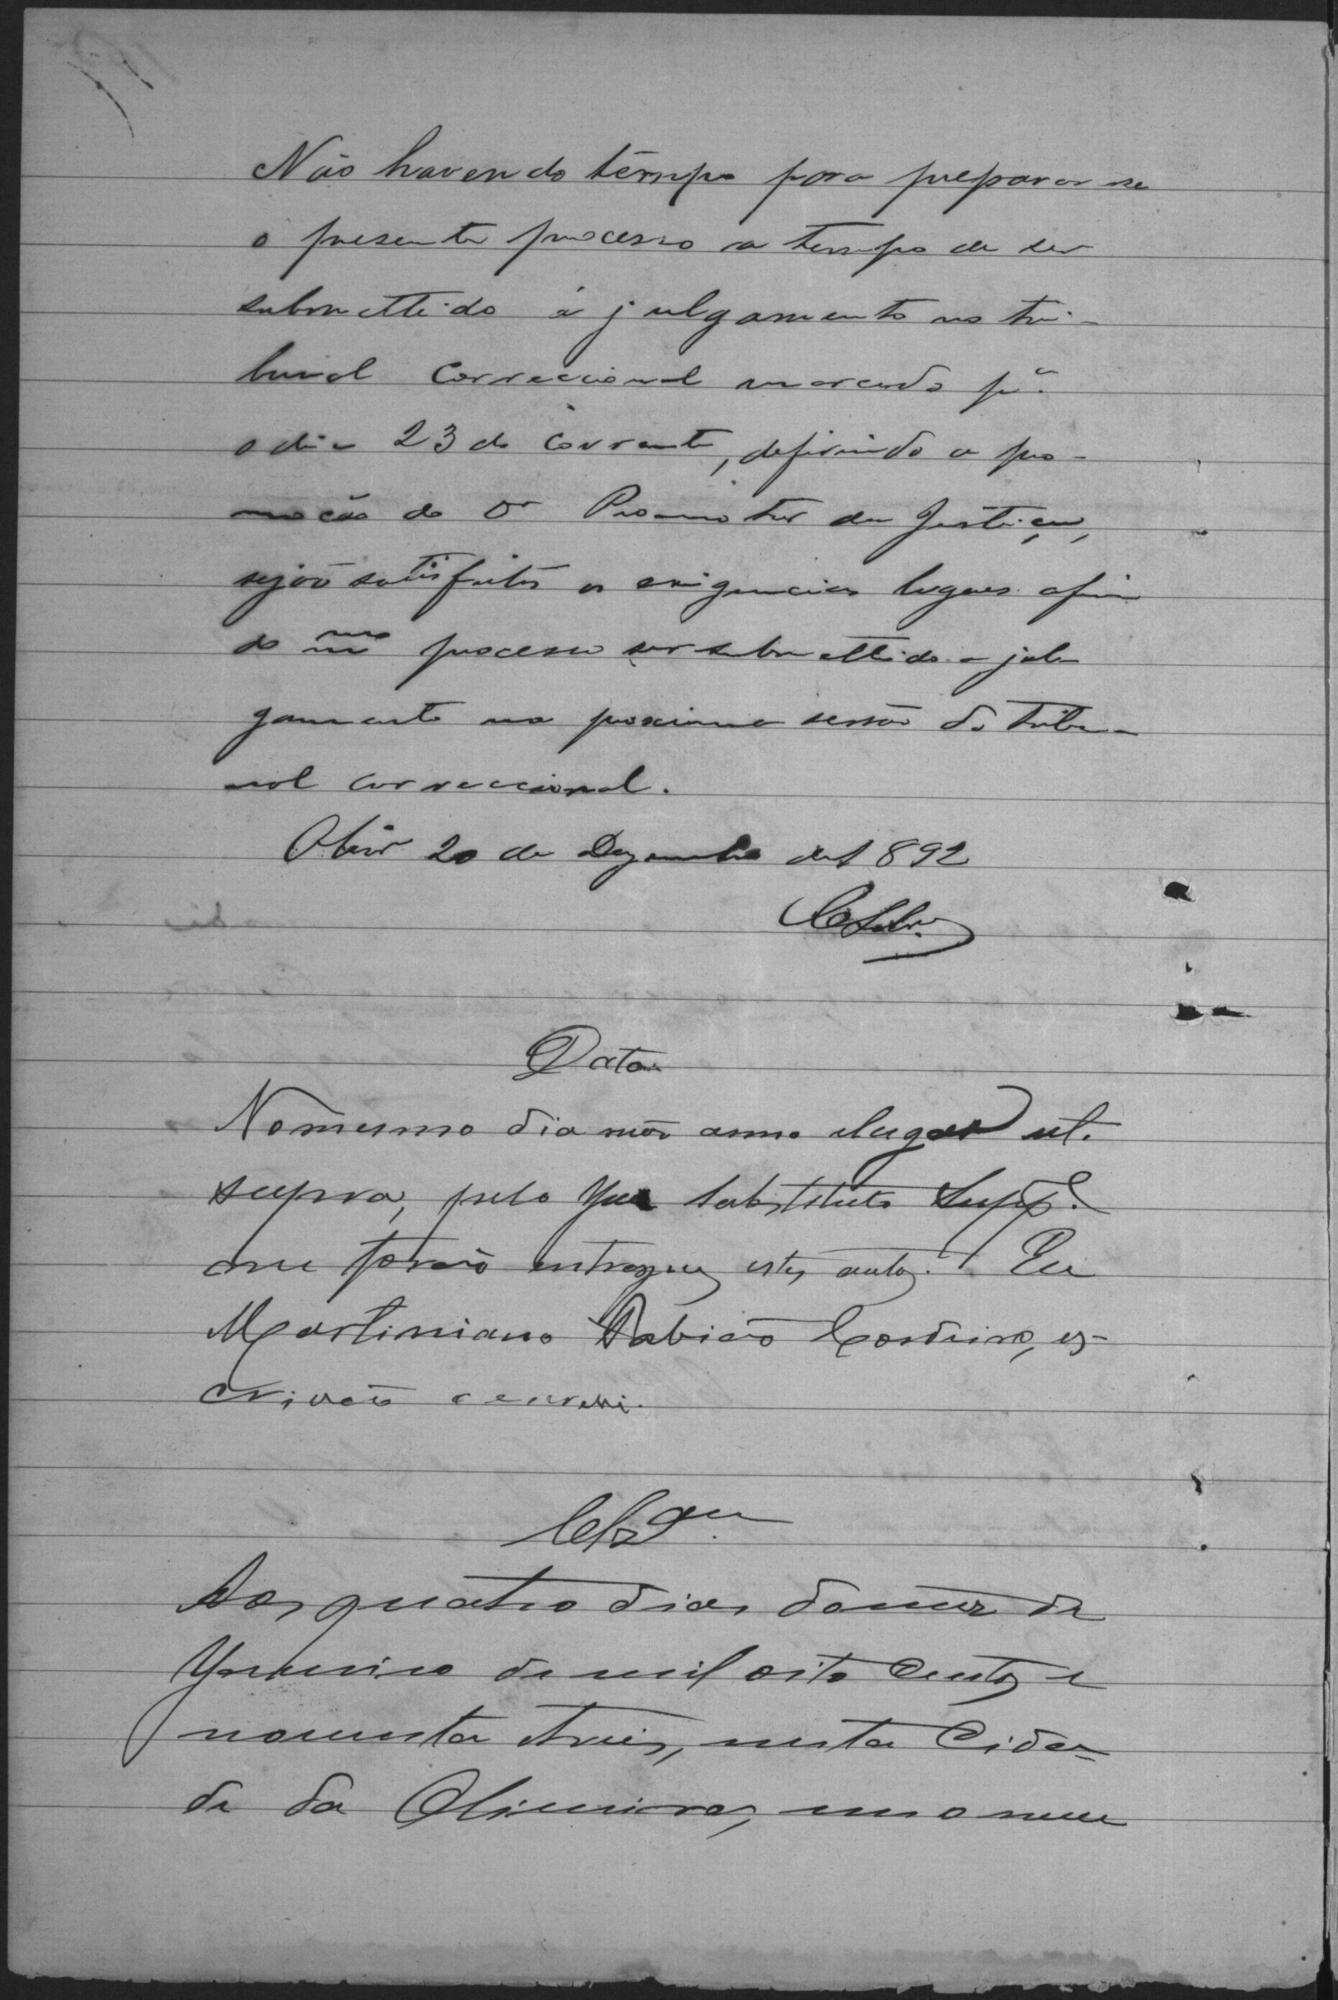 Não havendo tempo para preparar se
o presente processo a tempo de ser
submettido á julgamento no tri-
bunal Correccional marcado pª
o dia 23 do Corrente, deferindo a pro-
moção do Dr Promotor da Justiça,
sejão satisfeitas as exigencias legaes afim
do mmo processo ser submettido a jul
gamento na proxima sessão do tribu-
nal correccional.
20 de Dezembro de 1892
Data
No mesmo dia mês anno e lugar ut.
supra, pelo Juiz Substituto Supp.e
me forão entregues estes autos. Eu
Martiniano Cordeiro, es-
crivão o escrevi.
Clsão
Aos quatro dias do mez de
Janeiro de mil oito Centos e
noventa e tres, nesta Cida-
de da Oliveira, em o meu